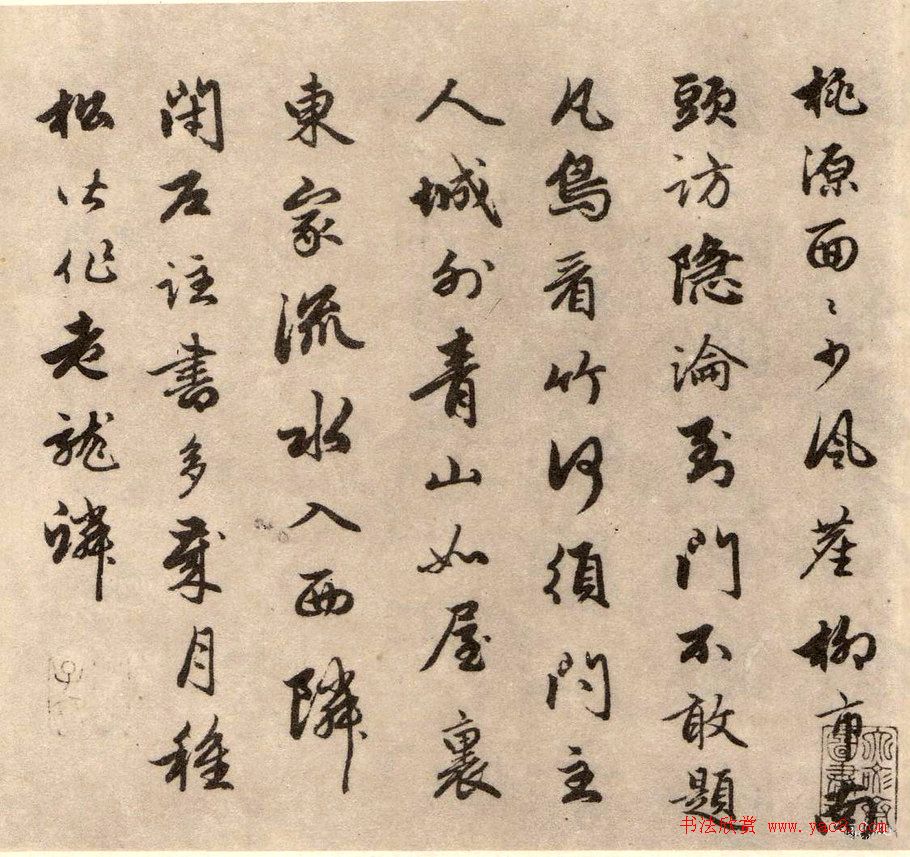 桃源面〻少風塵柳市南
頭訪隱淪到門不敢題
凡鳥看竹何須問主
人城外青山如屋裏
東家流水入西隣
閉戶註書多歲月種
松皆作老龍鱗
书法欣赏 www.yac8.com